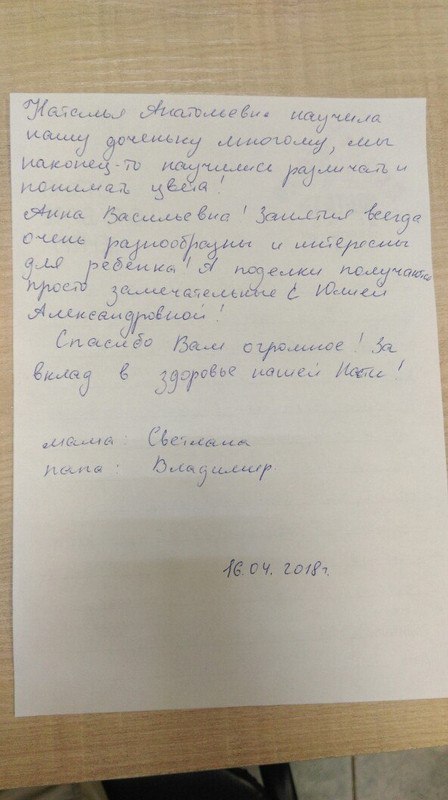 Наталья Анатольевна научила
нашу доченьку многому, мы
наконец-то научились различать и
понимать цвета!
Анна Васильевна! Занятия всегда
очень разнообразны и интересны
для ребёнка! А поделки получаются
просто замечательные с Юлией
Александровной!
Спасибо Вам огромное! За
вклад в здоровье нашей Кати!
мама: Светлана
папа: Владимир
16.04.2018г.